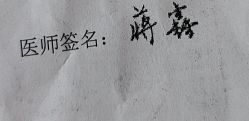 医师签名：蒋鑫